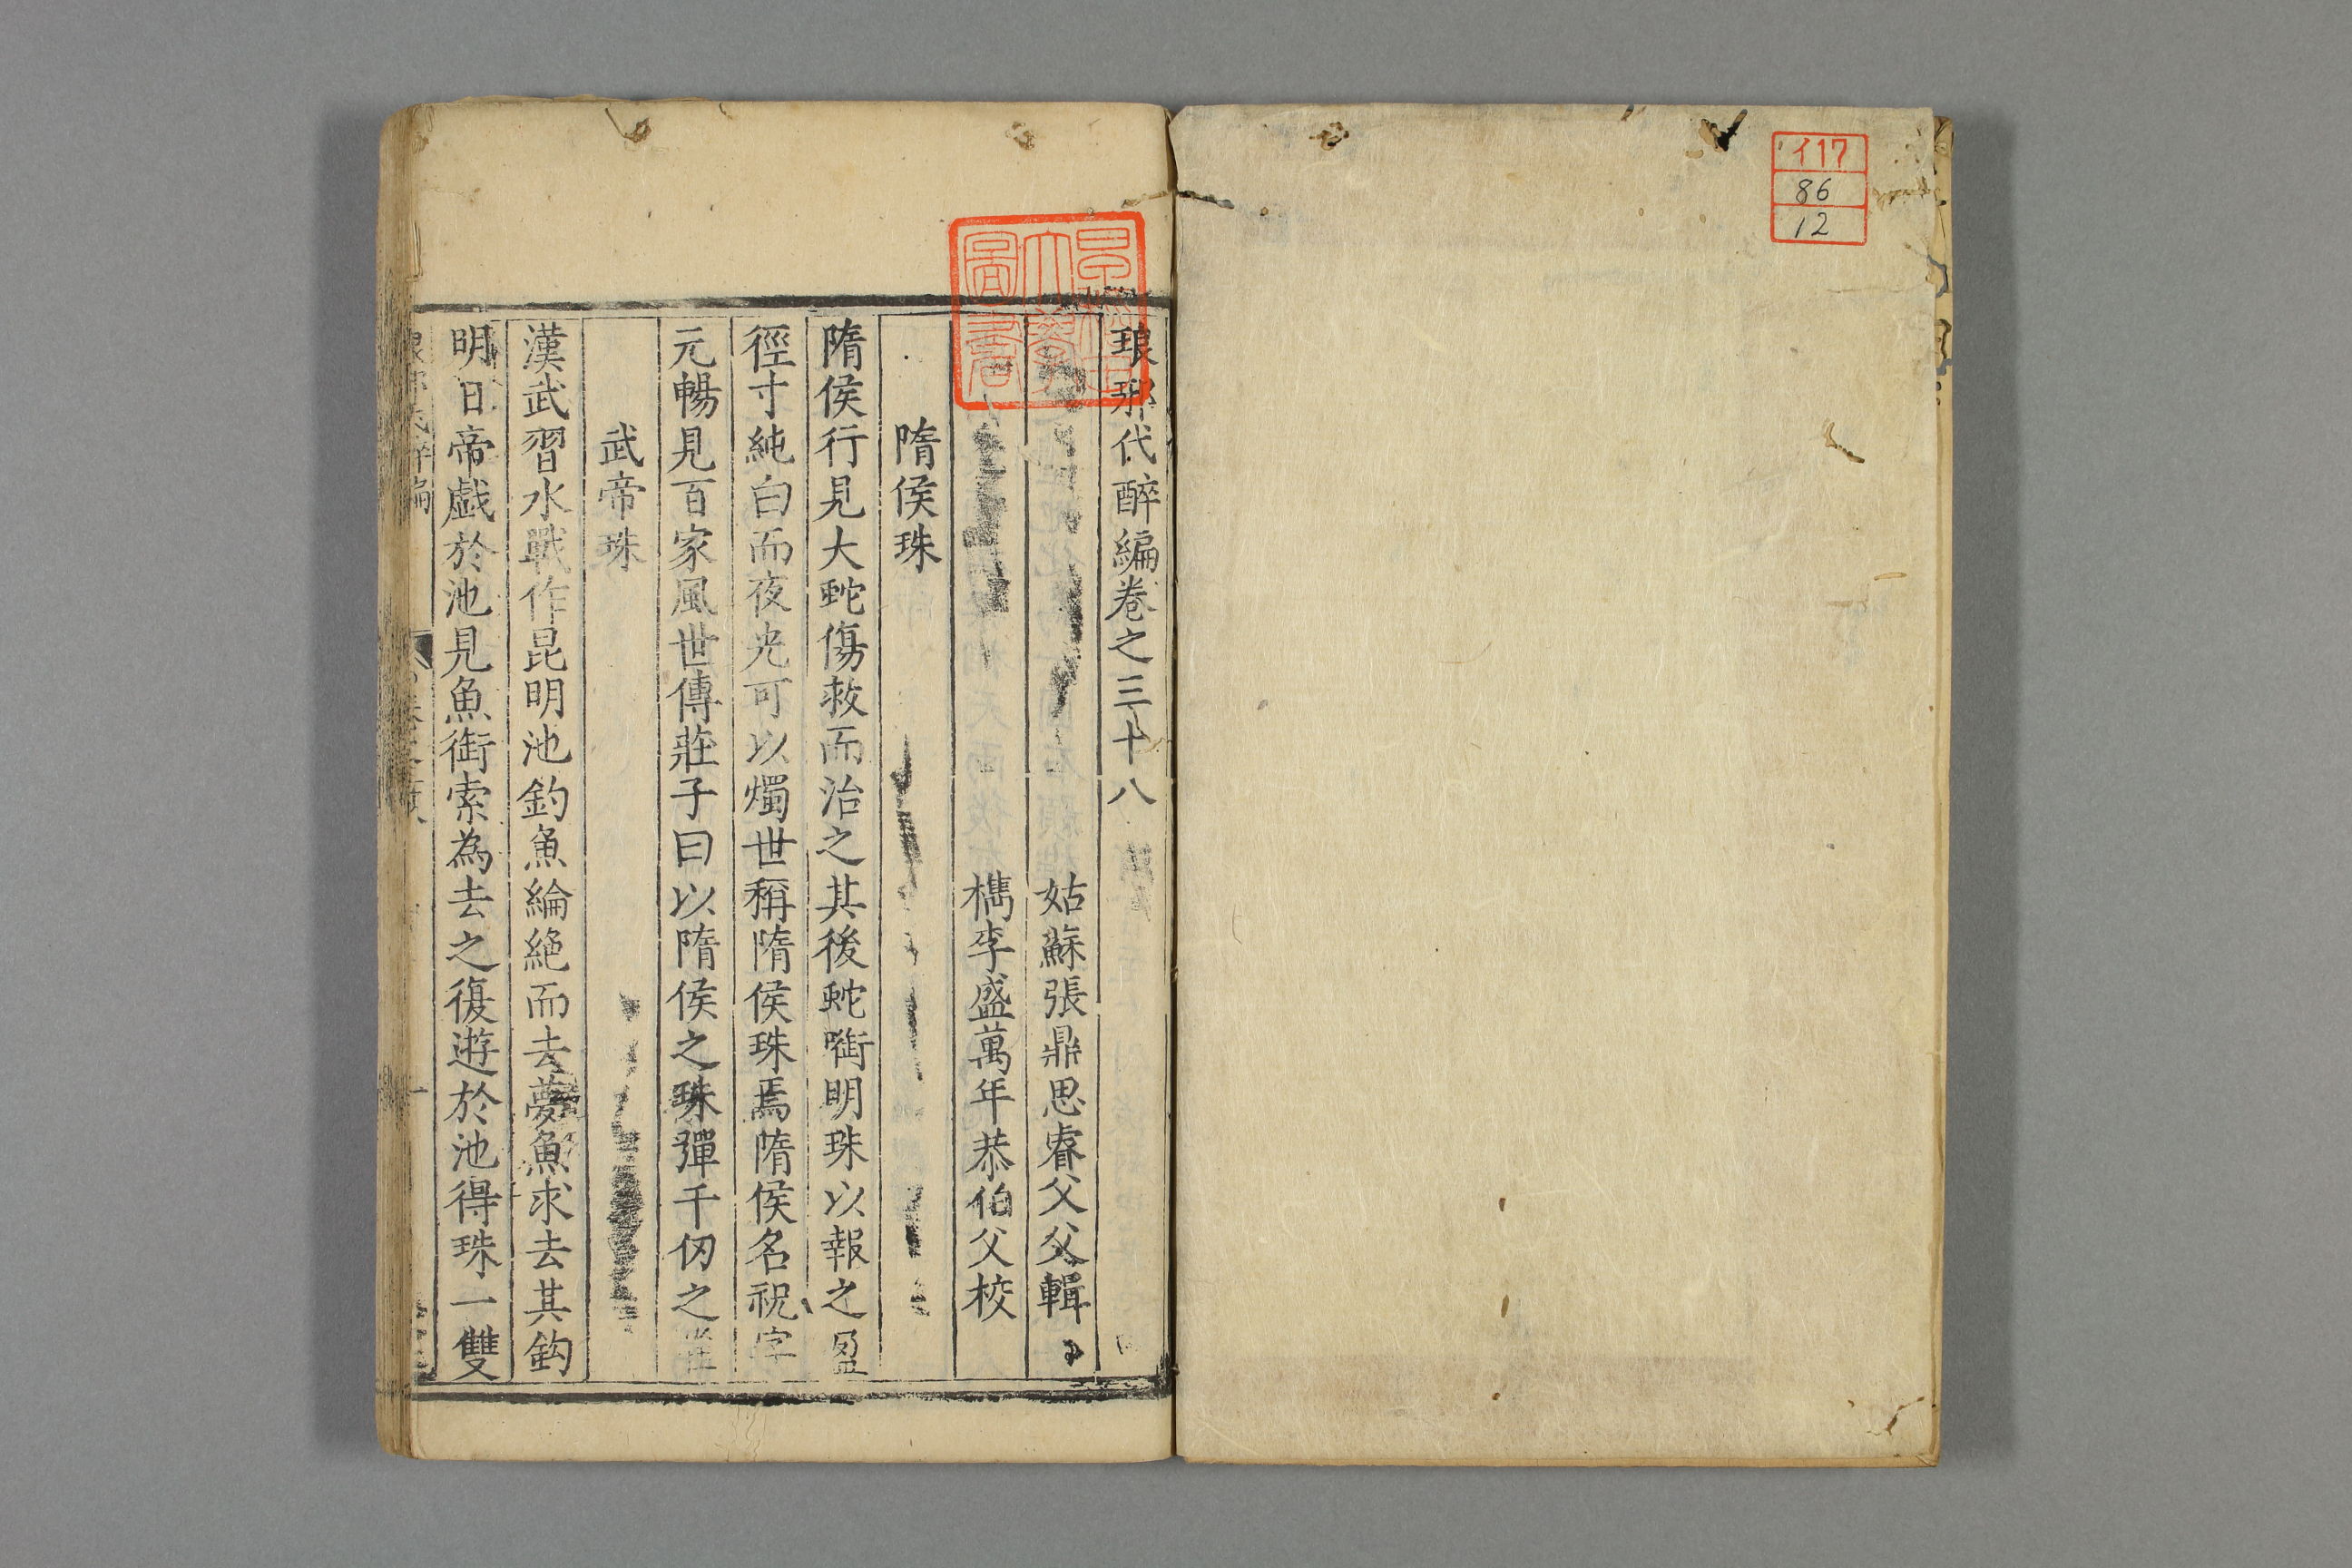 イ17
86
12
琅琊代醉編卷之三十八
姑蘇張鼎思睿父父輯
檇李盛萬年恭伯父校
隋侯珠
隋侯行見大蛇傷救而治之其後蛇嚙明珠以報之盈
徑寸純白而夜光可以燭世稱隋侯珠焉隋侯名祝字
元暢見百家風世傳莊子曰以隋侯之珠彈千仞之雀
武帝珠
漢武習水戰作昆明池釣魚綸絕而去夢魚求去其鈎
明日帝戲於池見魚銜索為去之復遊於池得珠一雙